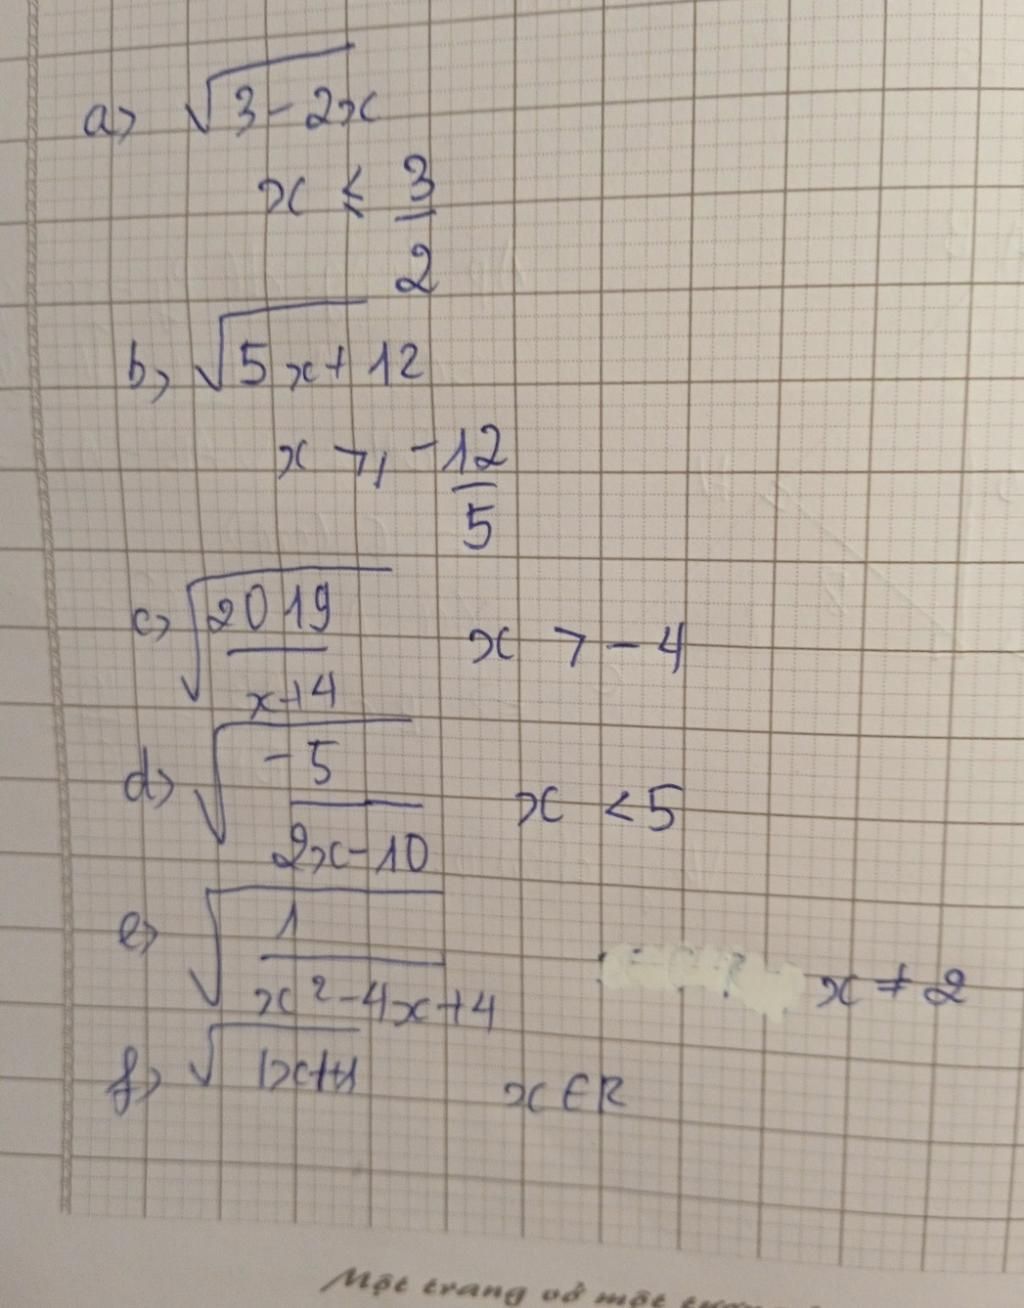 a> √3-2x
x ≤ 3/2
b, √5x+12
x ≥ -12/5
c> √2019/x+4 x > -4
d> √-5/2x-10 x < 5
e> √1/x²-4x+4 x ≠ 2
f> √|x|+1 x ∈ R
Một trang vở một